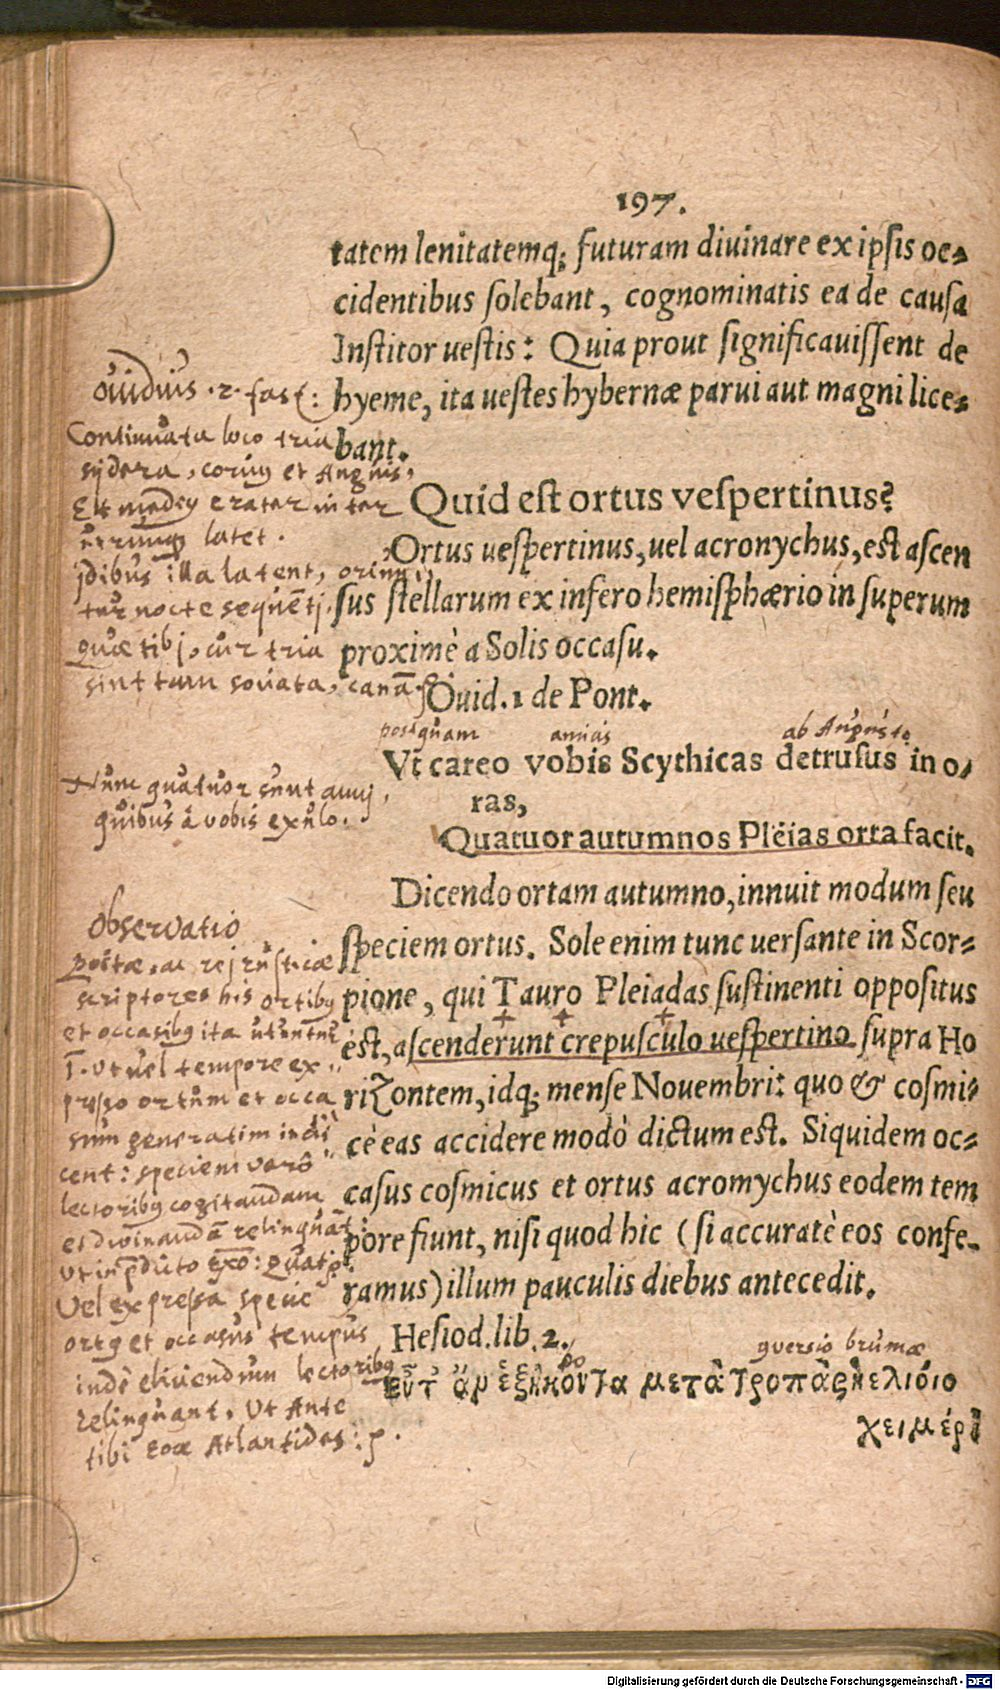 197.
tatem lenitatemq; futuram diuinare ex ipsis oc⸗
cidentibus solebant, cognominatis ea de causa
Institor uestis: Quia prout significauissent de
hyeme, ita uestes hybernæ parui aut magni lice⸗
bant.
Quid est ortus vespertinus?
Ortus uespertinus, uel acronychus, est ascen
sus stellarum ex infero hemisphærio in superum
proximè a Solis occasu.
Ouid. 1 de Pont.
postquam amicis ab Augusto
Vt careo vobis Scythicas detrusus in o⸗
ras,
Quatuor autumnos Plëias orta facit.
Dicendo ortam autumno, innuit modum seu
speciem ortus. Sole enim tunc uersante in Scor⸗
pione, qui Tauro Pleiadas sustinenti oppositus
est, ascenderunt crepusculo uespertino supra Ho
rizontem, idq; mense Nouembri: quo & cosmi⸗
cè eas accidere modò dictum est. Siquidem oc⸗
casus cosmicus et ortus acromychus eodem tem
pore fiunt, nisi quod hic (si accuratè eos confe⸗
ramus) illum pauculis diebus antecedit.
Hesiod. lib. 2.
brumæ
Εὖτ' ἂν ἑξήκοντα μετὰ τροπὰς ἠελίοιο
χειμέρι
Ouidius .2. fast:
Continuata loco tria
sydera, corvus et Anguis,
Et medius crater inter
utrumq; latet.
Idibus illa latent, oriun⸗
tur nocte sequenti.
quæ tibi, cur tria
sint tam sociata, canam.
Nunc quatuor sunt anni,
quibus â vobis exulo.
Observatio
Poëtæ, ac rei rusticæ
scriptores his ortibus
et occasibus ita utuntur
I. Vt uel tempore ex⸗
presso ortum et occa
sum generatim indi⸗
cent: speciem verô
lectoribus cogitandam
et divinandã relinquãt
ut in
Vel expressa specie
ortus et occasus tempus
inde eliciendum lectoribus
relinquant, Vt Ante
tibi Eoæ Atlantides: p.
Digitalisierung gefördert durch die Deutsche Forschungsgemeinschaft - DFG